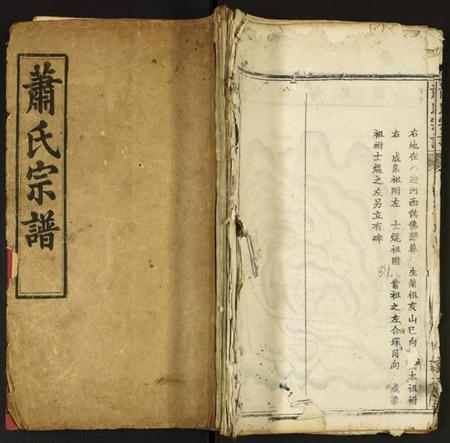 蕭氏宗譜
右地在八 河西 佛 墓 生蘭祖亥山巳向 本祖祔
右 成業祖附左 士焜祖附 祖之左合塚同向 成梁
祖祔士焜之左另立有碑